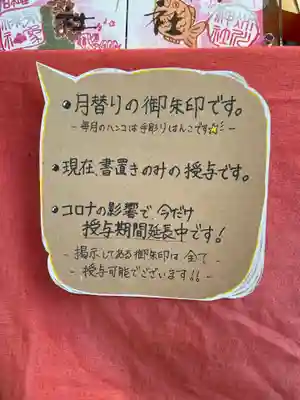 社
・月替りの御朱印です。
-毎月のハンコは手彫りはんこです☆-
・現在、書置きのみの授与です。
・コロナの影響で、今だけ
授与期間延長中です!
-掲示してある御朱印は全て-
-授与可能でございます!!-